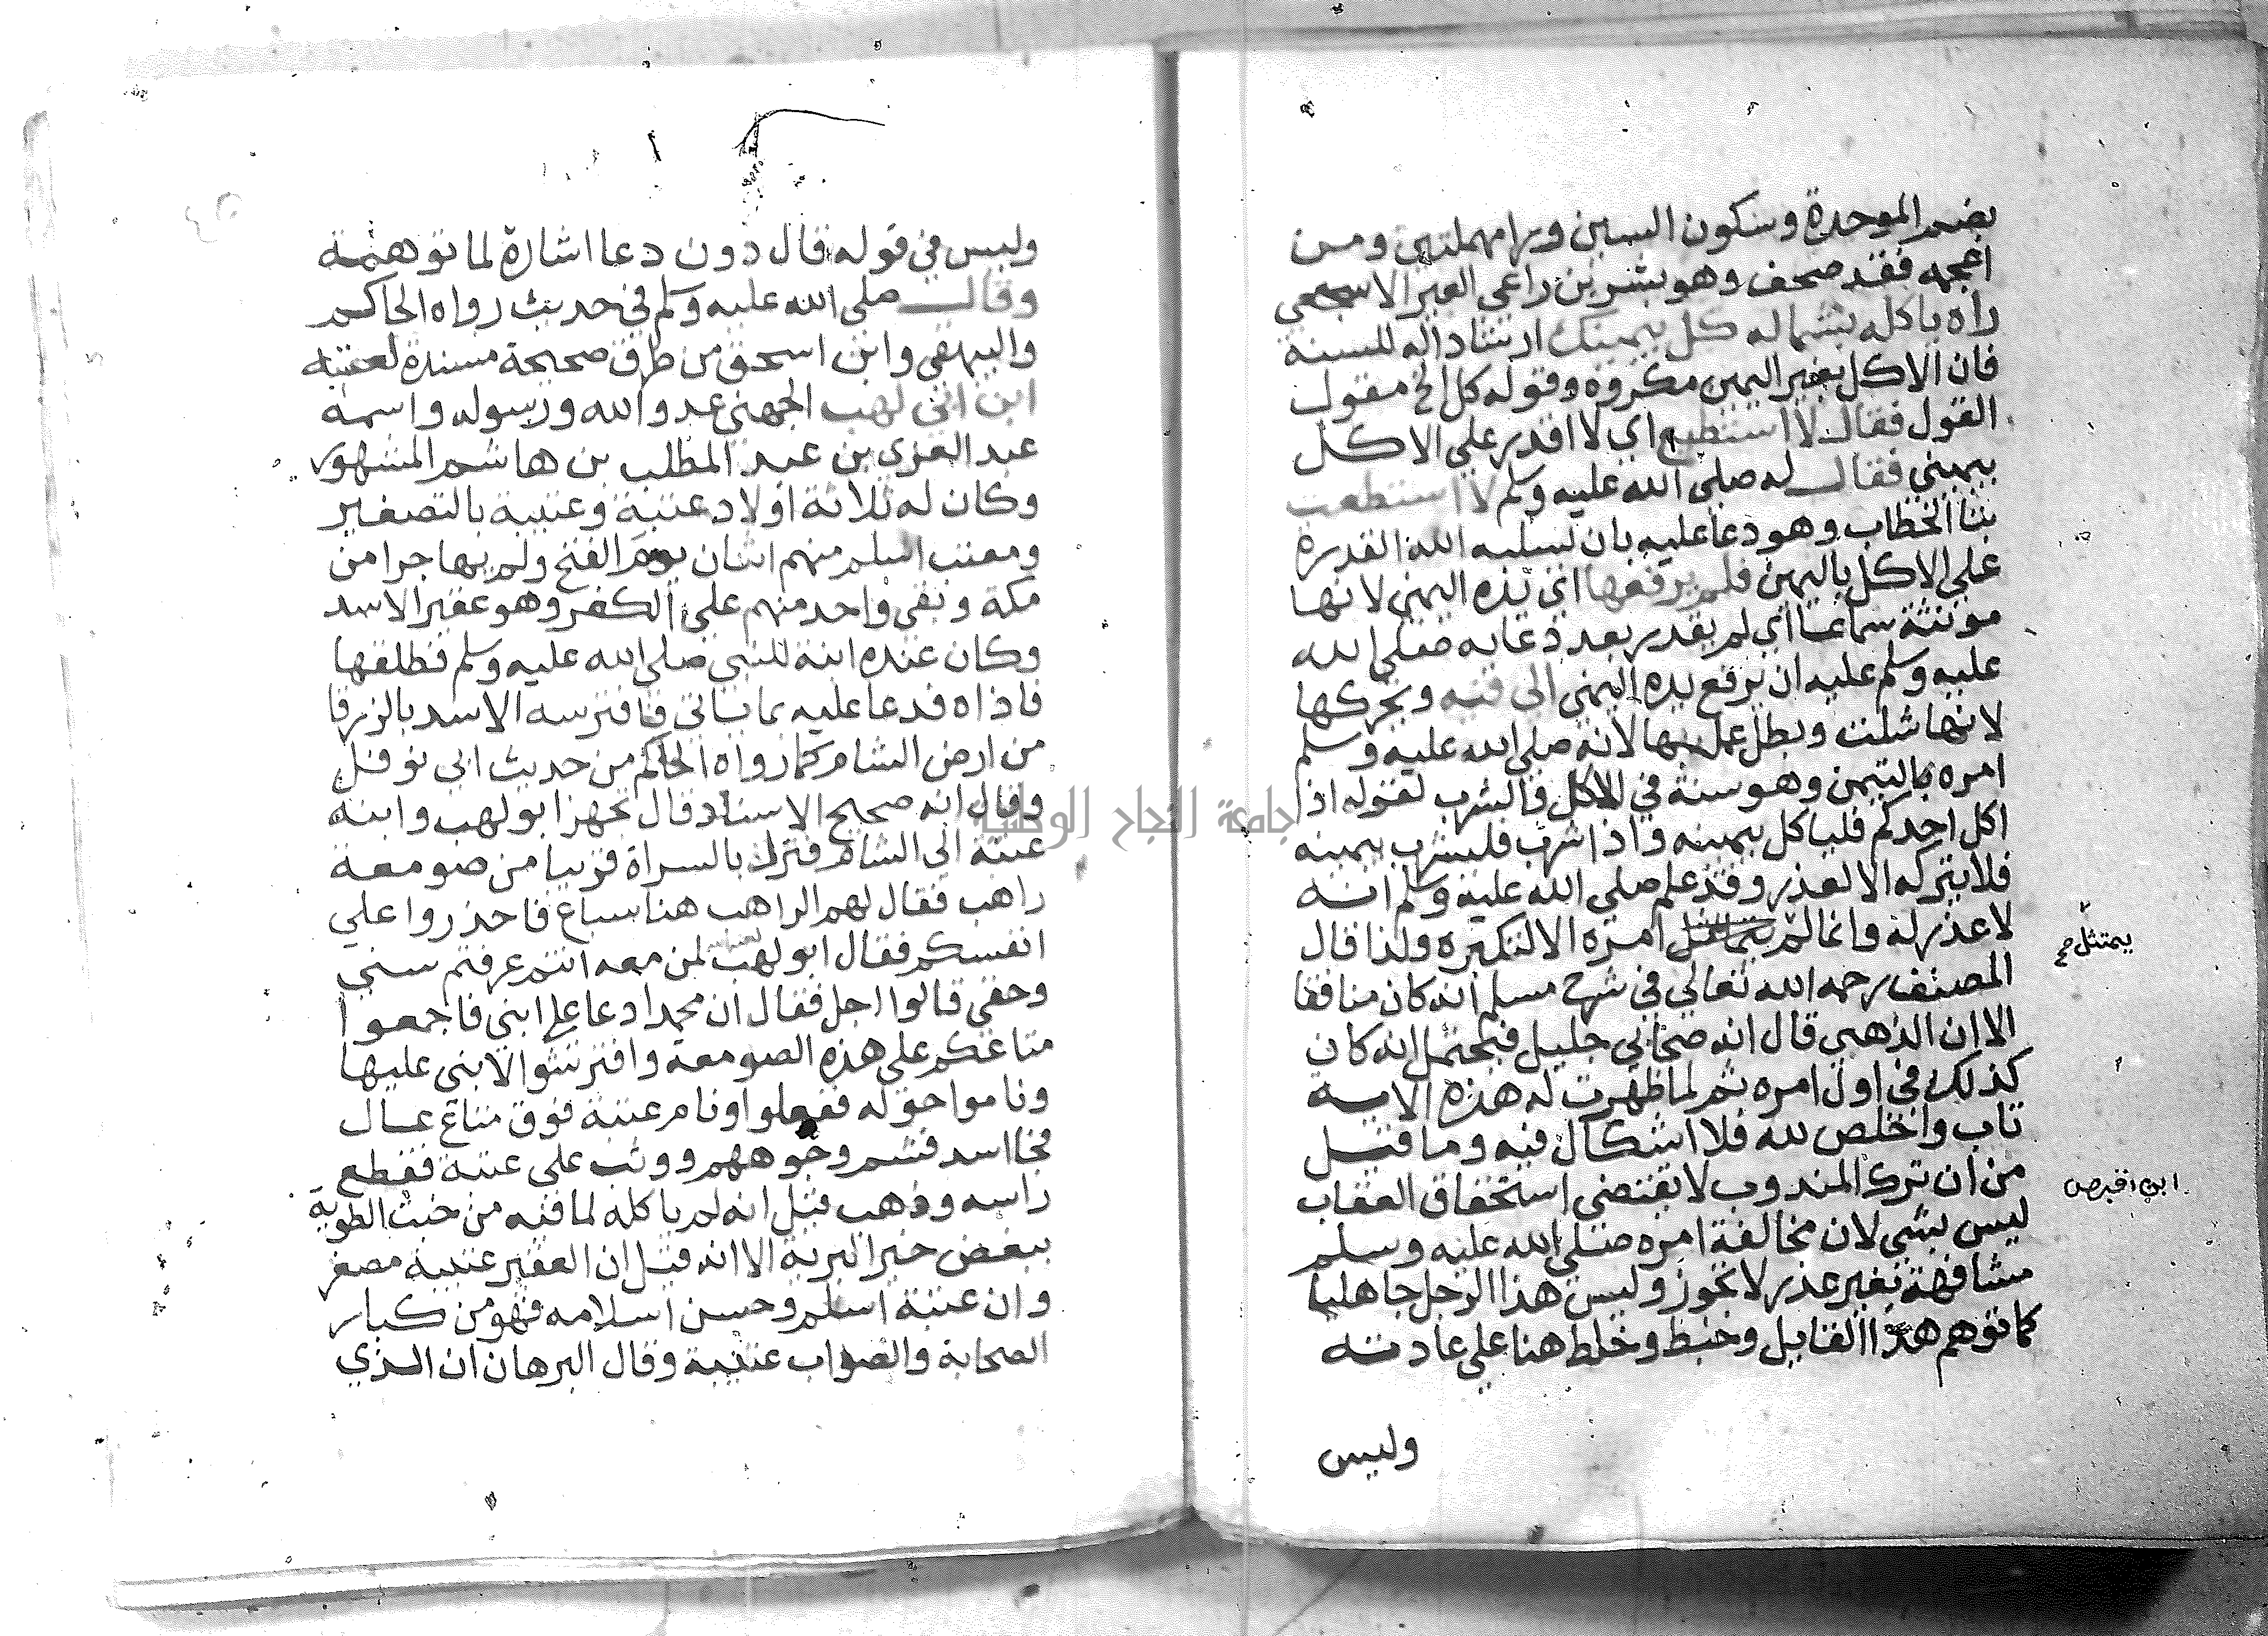 بضم الموحدة وسكون السين ورا مهملتين ومن
اعجمه فقد صحف وهو بشر بن راعي العير الاشجعي
راه ياكله بشماله كل بيمينك ارشادا له للسنة
فان الاكل بغير اليمين مكروه وقوله كل الخ مقول
القول فقال لا استطيع اي لا اقدر علي الاكل
بيميني فقال له صلي الله عليه وسلم لا استطعت
بتا الخطاب وهو دعا عليه بان يسلبه الله القدرة
علي الاكل باليمين فلم يرفعها اي يده اليمني لانها
مونثة سماعا اي لم يقدر بعد دعايه صلي الله
عليه وسلم عليه ان يرفع يده اليمني الي فيه ويحركها
لانها شلت وبطل عمل بها لانه صلي الله عليه وسلم
امره باليتمن وهو سنة في الاكل والشرب لقوله اذا
اكل احدكم فلياكل بيمينه واذا شرب فليشرب بيمينه
فلا يتركه الا لعذر وقد علم صلي الله عليه وسلم انه
لا عذر له وانما لم امره الا لتكبره ولذا قال
يمتثل صح
المصنف رحمه الله تعالي في شرح مسلم انه كان منافقا
الا ان الذهبي قال انه صحابي جليل فيحتمل انه كان
كذلك في اول امره ثم لما ظهرت له هذه الاية
تاب واخلص لله فلا اشكال فيه وما قيل
من ان ترك المندوب لا يقتضي استحقاق العقاب
ابن اقبرص
ليس بشي لان مخالفة امره صلي الله عليه وسلم
مشافهة بغير عذر لا تجوز وليس هذا الرجل جاهليا
كما توهم هذا القايل وخبط وخلط هنا علي عادته
وليس
وليس في قوله قال دون دعا اشارة لما توهمه
وقال صلي الله عليه وسلم في حديث رواه الحاكم
والبيهقي وابن اسحق من طرق صحيحة مسندة لعتبة
ابن ابي لهب الجهني عدو الله ورسوله واسمه
عبد العزي بن عبد المطلب بن هاشم المشهور
وكان له ثلاثة اولاد عتبة وعتيبة بالتصغير
ومعتب اسلم منهم اثنان يوم الفتح ولم يهاجرا من
مكة وبقي واحد منهم علي الكفر وهو عقير الاسد
وكان عنده ابنة للنبي صلي الله عليه وسلم فطلقها
فاذاه فدعا عليه بما ياتي فافترسه الاسد بالزرقا
من ارض الشام كما رواه الحاكم من حديث ابي نوفل
وقال انه صحيح الاسناد قال تجهز ابو لهب وابنه
عتبة الي الشام فنزل بالسراة قريبا من صومعة
راهب فقال لهم الراهب هنا سباع فاحذروا علي
انفسكم فقال ابو لهب لمن معه انتم عرفتم سني
وحقي قالوا اجل فقال ان محمدا دعا علي ابني فاجمعوا
متاعكم علي هذه الصومعة وافترشوا لابني عليها
وناموا حوله ففعلوا ونام عتبة فوق متاع عال
فجا اسد فشم وجوههم ووثب علي عتبة فقطع
راسه وذهب قيل انه لم ياكله لما فيه من خبث الطوية
ببغض خير البرية الا انه قيل ان العقير عتيبة مصغر
وان عتبة اسلم وحسن اسلامه فهو من كبار
الصحابة والصواب عتيبة وقال البرهان ان الذي
جامعة النجاح الوطنية